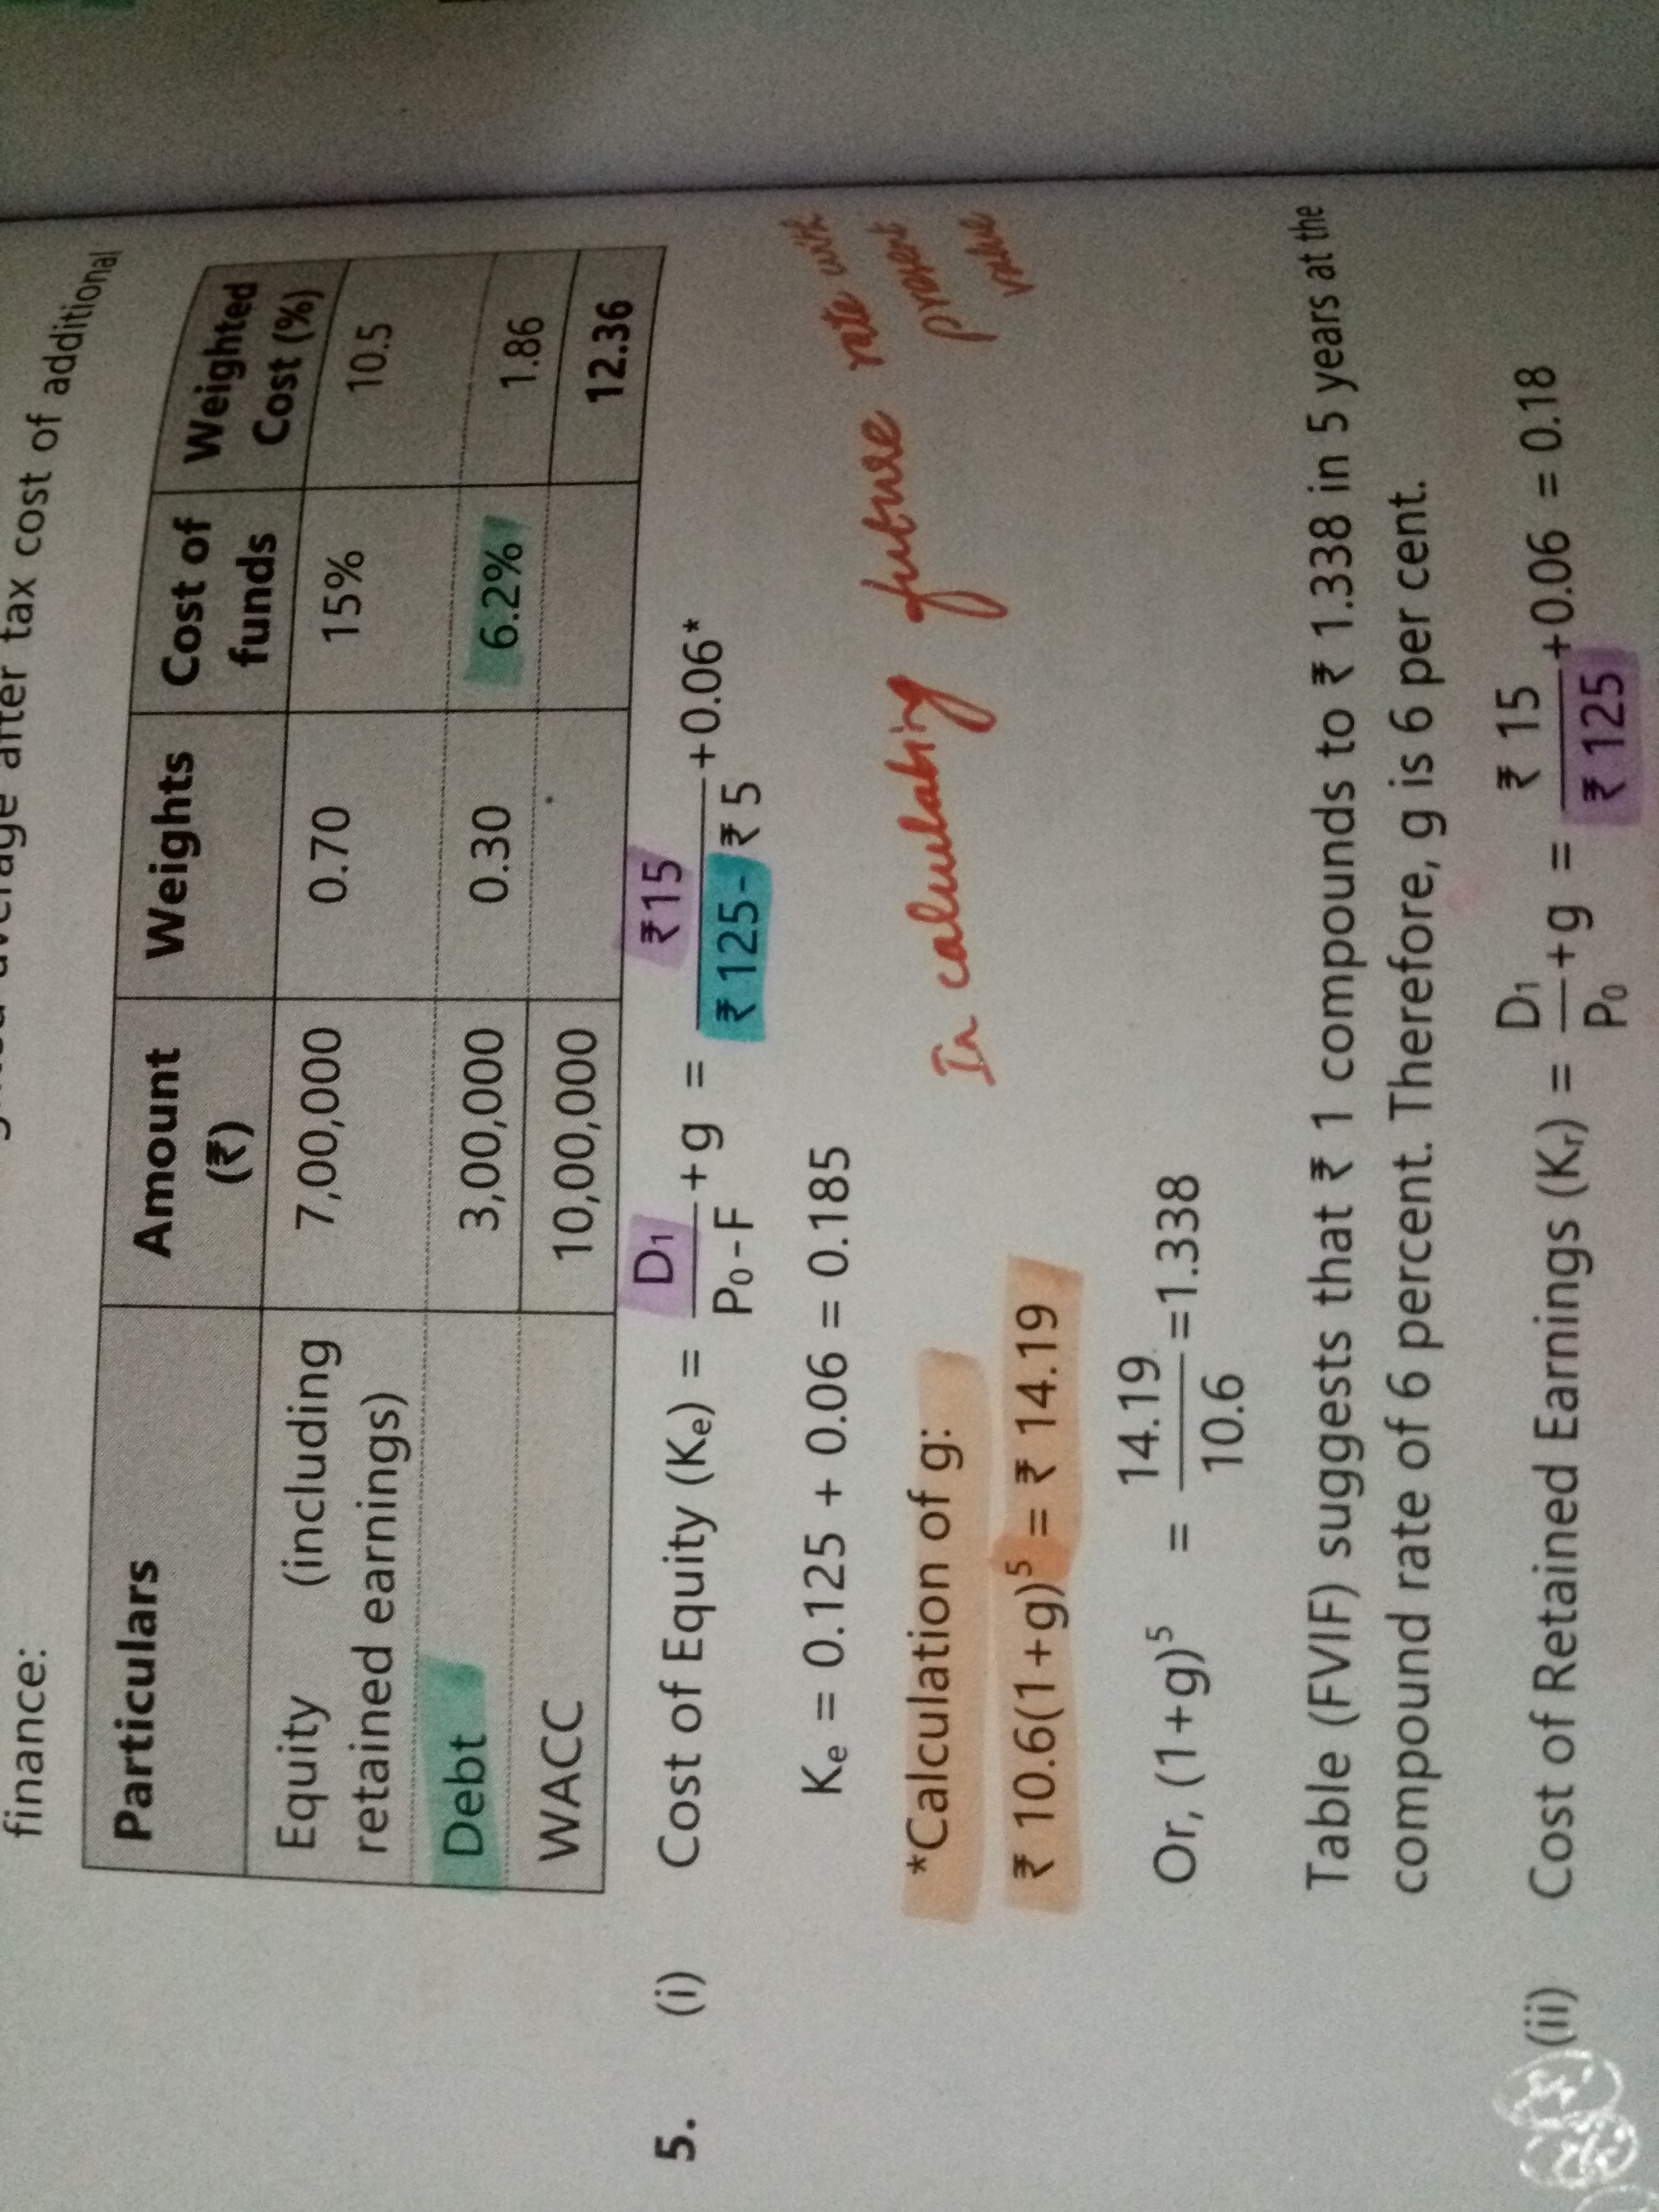 weighted average after tax cost of additional
finance:
Particulars Amount (₹) Weights Cost of funds Weighted Cost (%)
Equity (including retained earnings) 7,00,000 0.70 15% 10.5
Debt 3,00,000 0.30 6.2% 1.86
WACC 10,00,000 12.36
5. (i) Cost of Equity (Ke) = D1/(P0-F) +g = ₹15/(₹125-₹5) +0.06*
Ke = 0.125 + 0.06 = 0.185
In calculating future rate with present value
*Calculation of g:
₹ 10.6(1+g)⁵ = ₹ 14.19
Or, (1+g)⁵ = 14.19/10.6 =1.338
Table (FVIF) suggests that ₹ 1 compounds to ₹ 1.338 in 5 years at the
compound rate of 6 percent. Therefore, g is 6 per cent.
(ii) Cost of Retained Earnings (Kr) = D1/P0 +g = ₹ 15/₹ 125 +0.06 = 0.18